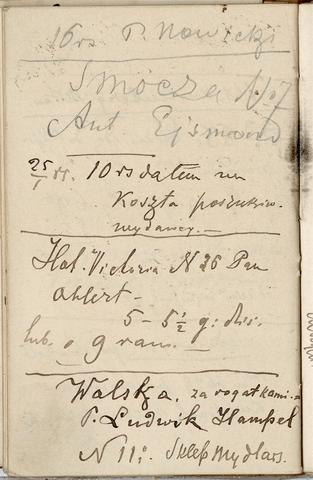 16 rs P. Nowicki
Smocza No 7
Ant Ejsmond
25/1 10 rs datem na
koszta poszukiw.
wydawcy.—
Hot. Victoria N 26 Pan
Ohlert—
5–5½ g: dziś.
lub. o 9 rano.—
Wolska, za rogatkami.
P. Ludwik Hampel
N 11: Sklep Mydlars.